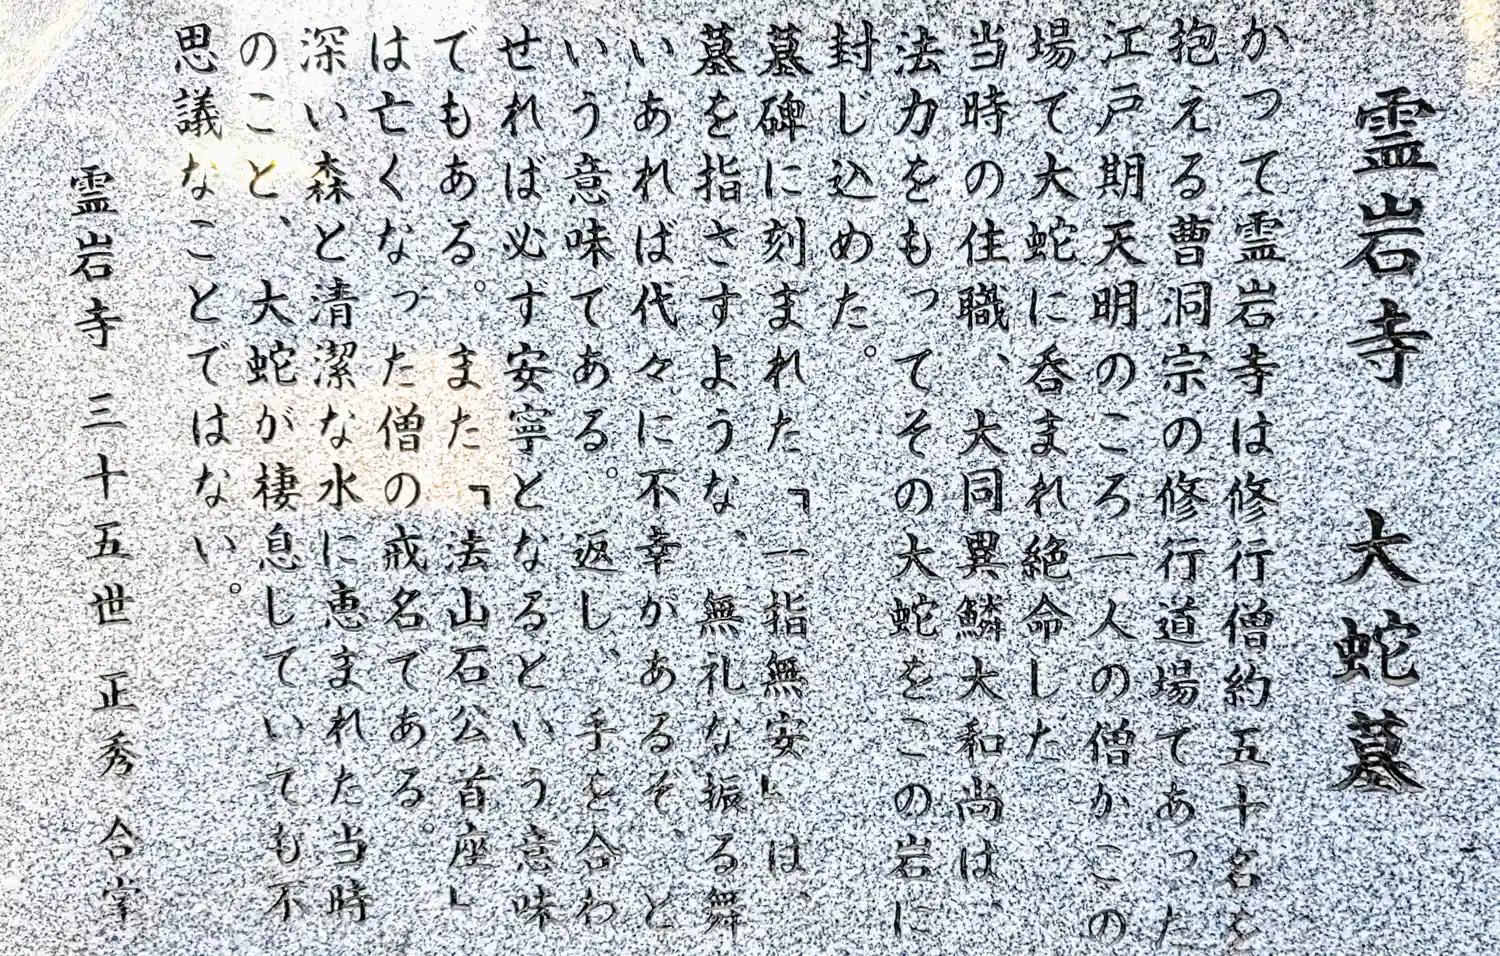 霊岩寺　大蛇墓
かつて霊岩寺は修行僧約五十名を
抱える曹洞宗の修行道場であった
江戸期天明のころ一人の僧がこの
場で大蛇に呑まれ絶命した。
当時の住職、大同異鱗大和尚は、
法力をもってその大蛇をこの岩に
封じ込めた。
墓碑に刻まれた「一指無安」は、
墓を指さすような、無礼な振る舞
いあれば代々に不幸があるぞ、と
いう意味である。返し、手を合わ
せれば必す安寧となるという意味
でもある。また「法山石公首座」
は亡くなった僧の戒名である。
深い森と清潔な水に恵まれた当時
のこと、大蛇が棲息していても不
思議なことではない。
霊岩寺 三十五世 正秀合掌